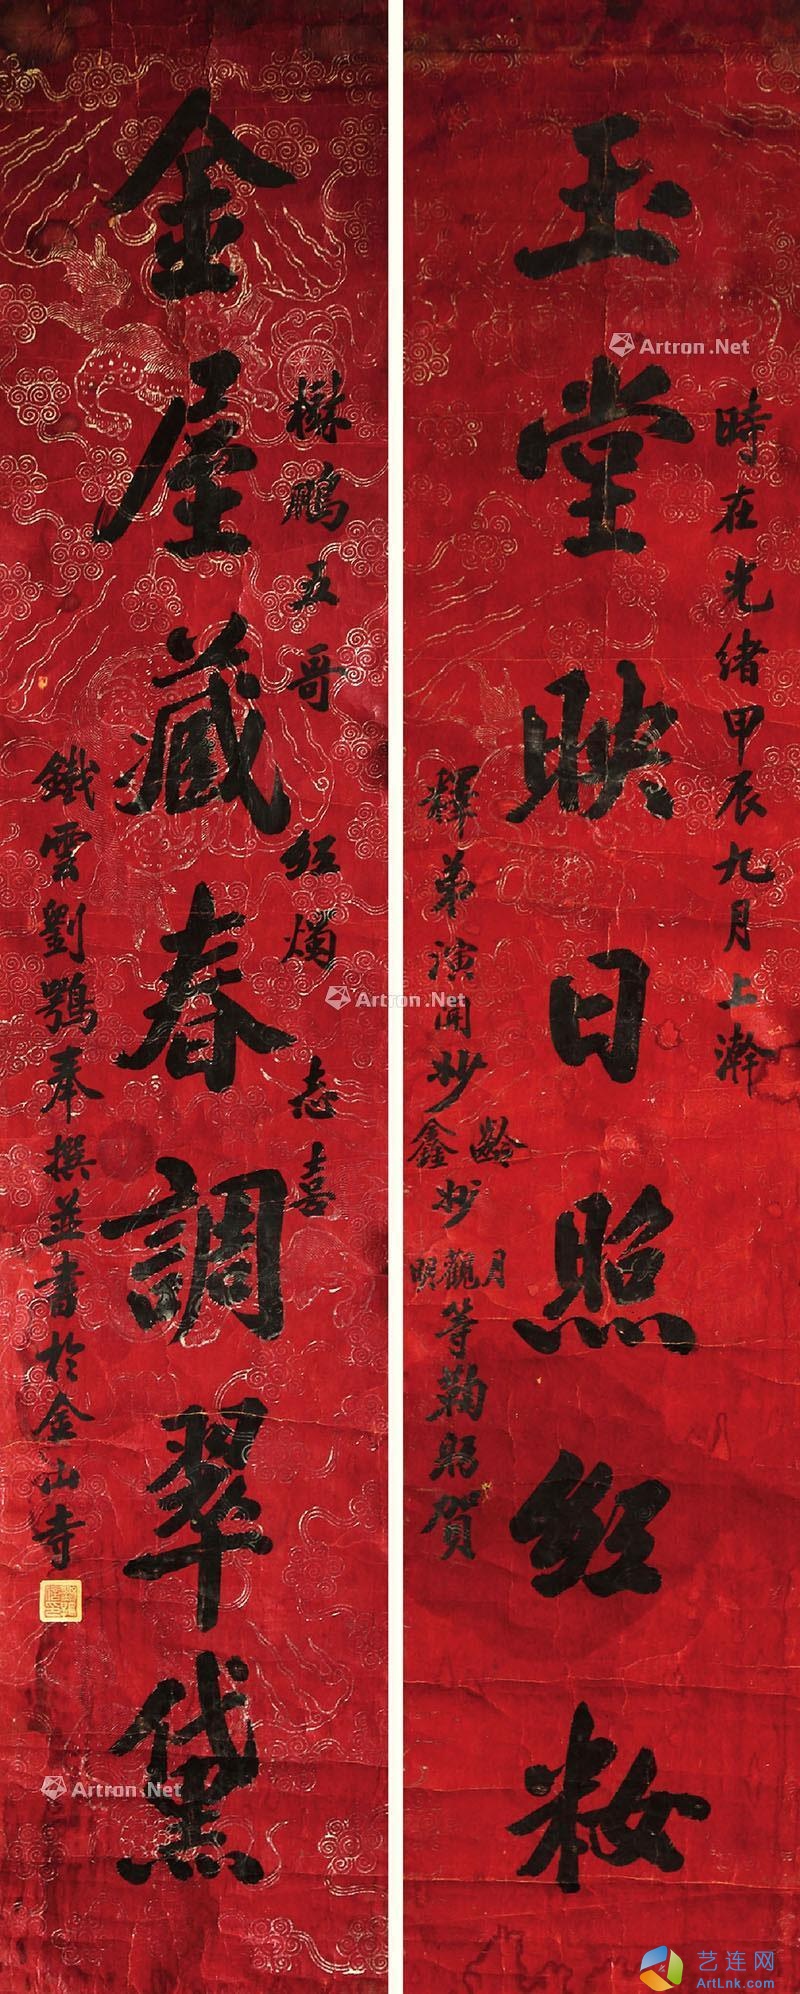 時在光緒甲辰九月上澣
玉堂映日照紅妝
輝弟演聞妙齡鑫妙月觀明等鞠躬賀
楙鵬五哥 紅燭 志喜
金屋藏春調翠黛
鐵雲劉鶚奉撰並書於金山寺
Artron.Net
Artron.Net
Artron.Net
艺连网
ArtLnk.com